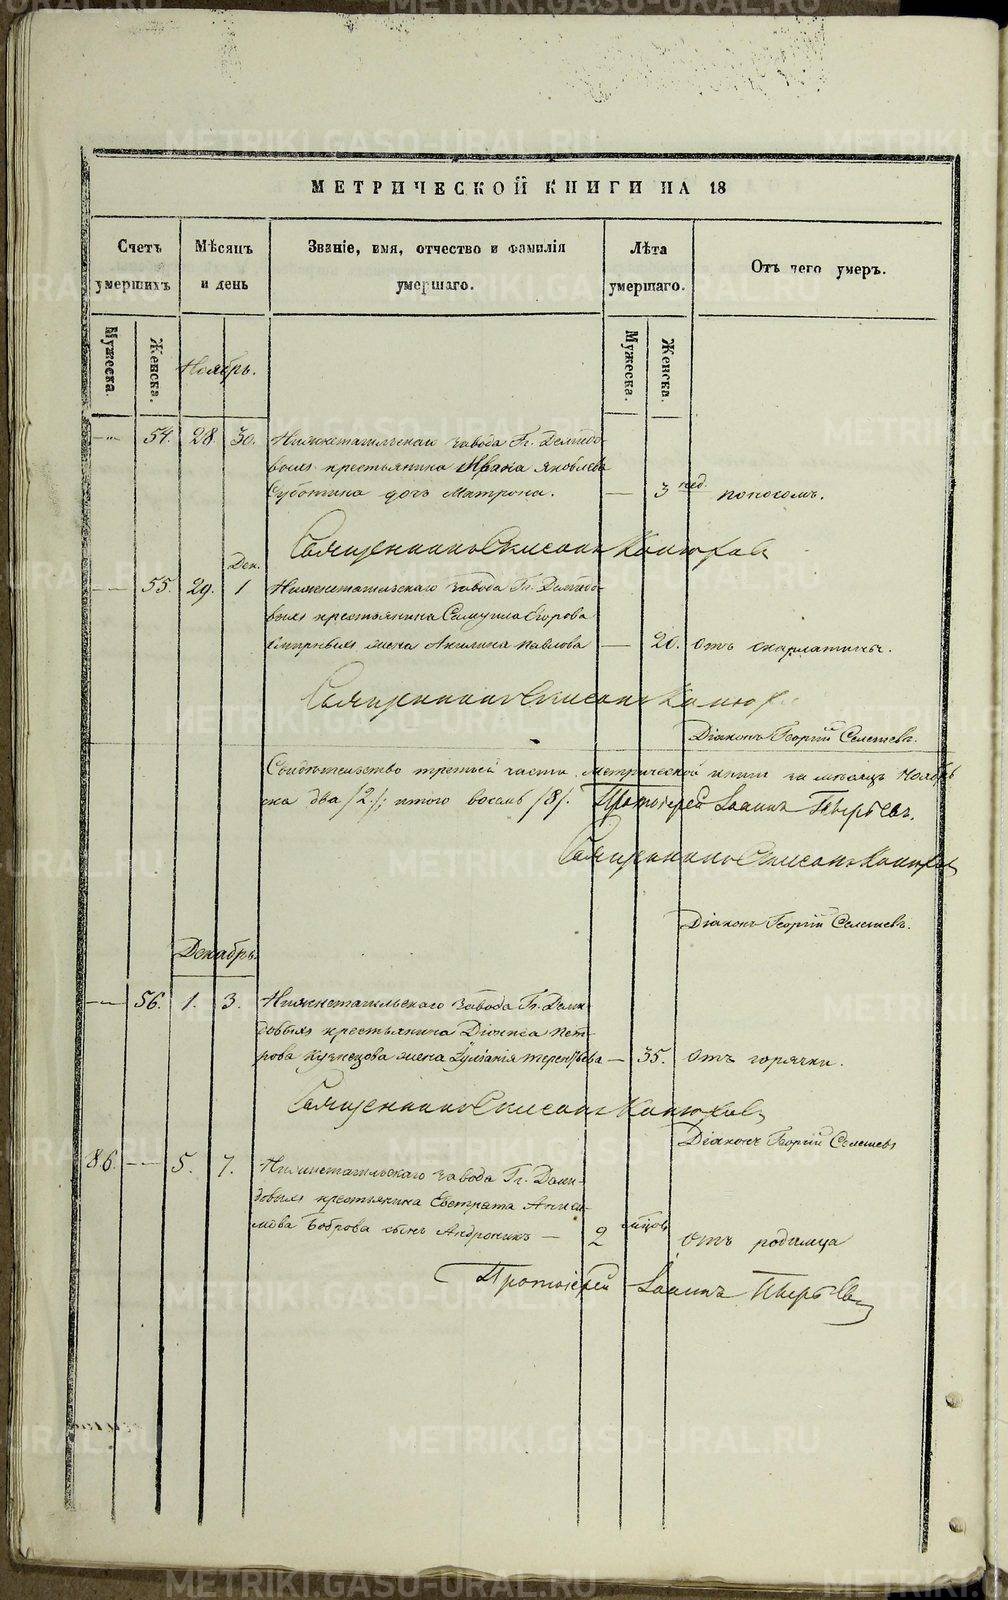 МЕТРИЧЕСКОЙ КНИГИ НА 18
Счетъ умершихъ
Мѣсяцъ и день
Званіе, имя, отчество и фамилія умершаго.
Лѣта умершаго.
Отъ чего умеръ.
Мужеска. Женска.
Мужеска. Женска.
Ноябрь.
54. 28. 30. Нижнетагильскаго завода Гг. Демидо-
выхъ крестьянина Ивана Яковлева
Суботина дочь Матрона. — 3 нед. поносомъ.
Священникъ
Дек.
55. 29. 1 Нижнетагильскаго завода Гг. Демидо-
выхъ крестьянина Самуила Егорова
жена Акилина Павлова — 20. отъ скарлатины.
Священникъ
Діаконъ Георгій Селешевъ.
Свидѣтельство третьей части метрической книги за мѣсяцъ Ноябрь
ска два /2./; итого восемь /8/. Протоіерей Іоаннъ
Священникъ
Діаконъ Георгій Селешевъ.
Декабрь
56. 1. 3. Нижнетагильскаго завода Гг. Деми-
довыхъ крестьянина Діониса Пет-
рова Кузнецова жена Іуліанія Терентьева — 35. отъ горячки.
Священникъ
Діаконъ Георгій Селешевъ
86. 5. 7. Нижнетагильскаго завода Гг. Деми-
довыхъ крестьянина Евстрата
Боброва сынъ Андроникъ — 2 мѣсяц. отъ родимца
Протоіерей Іоаннъ
METRIKI.GASO-URAL.RU